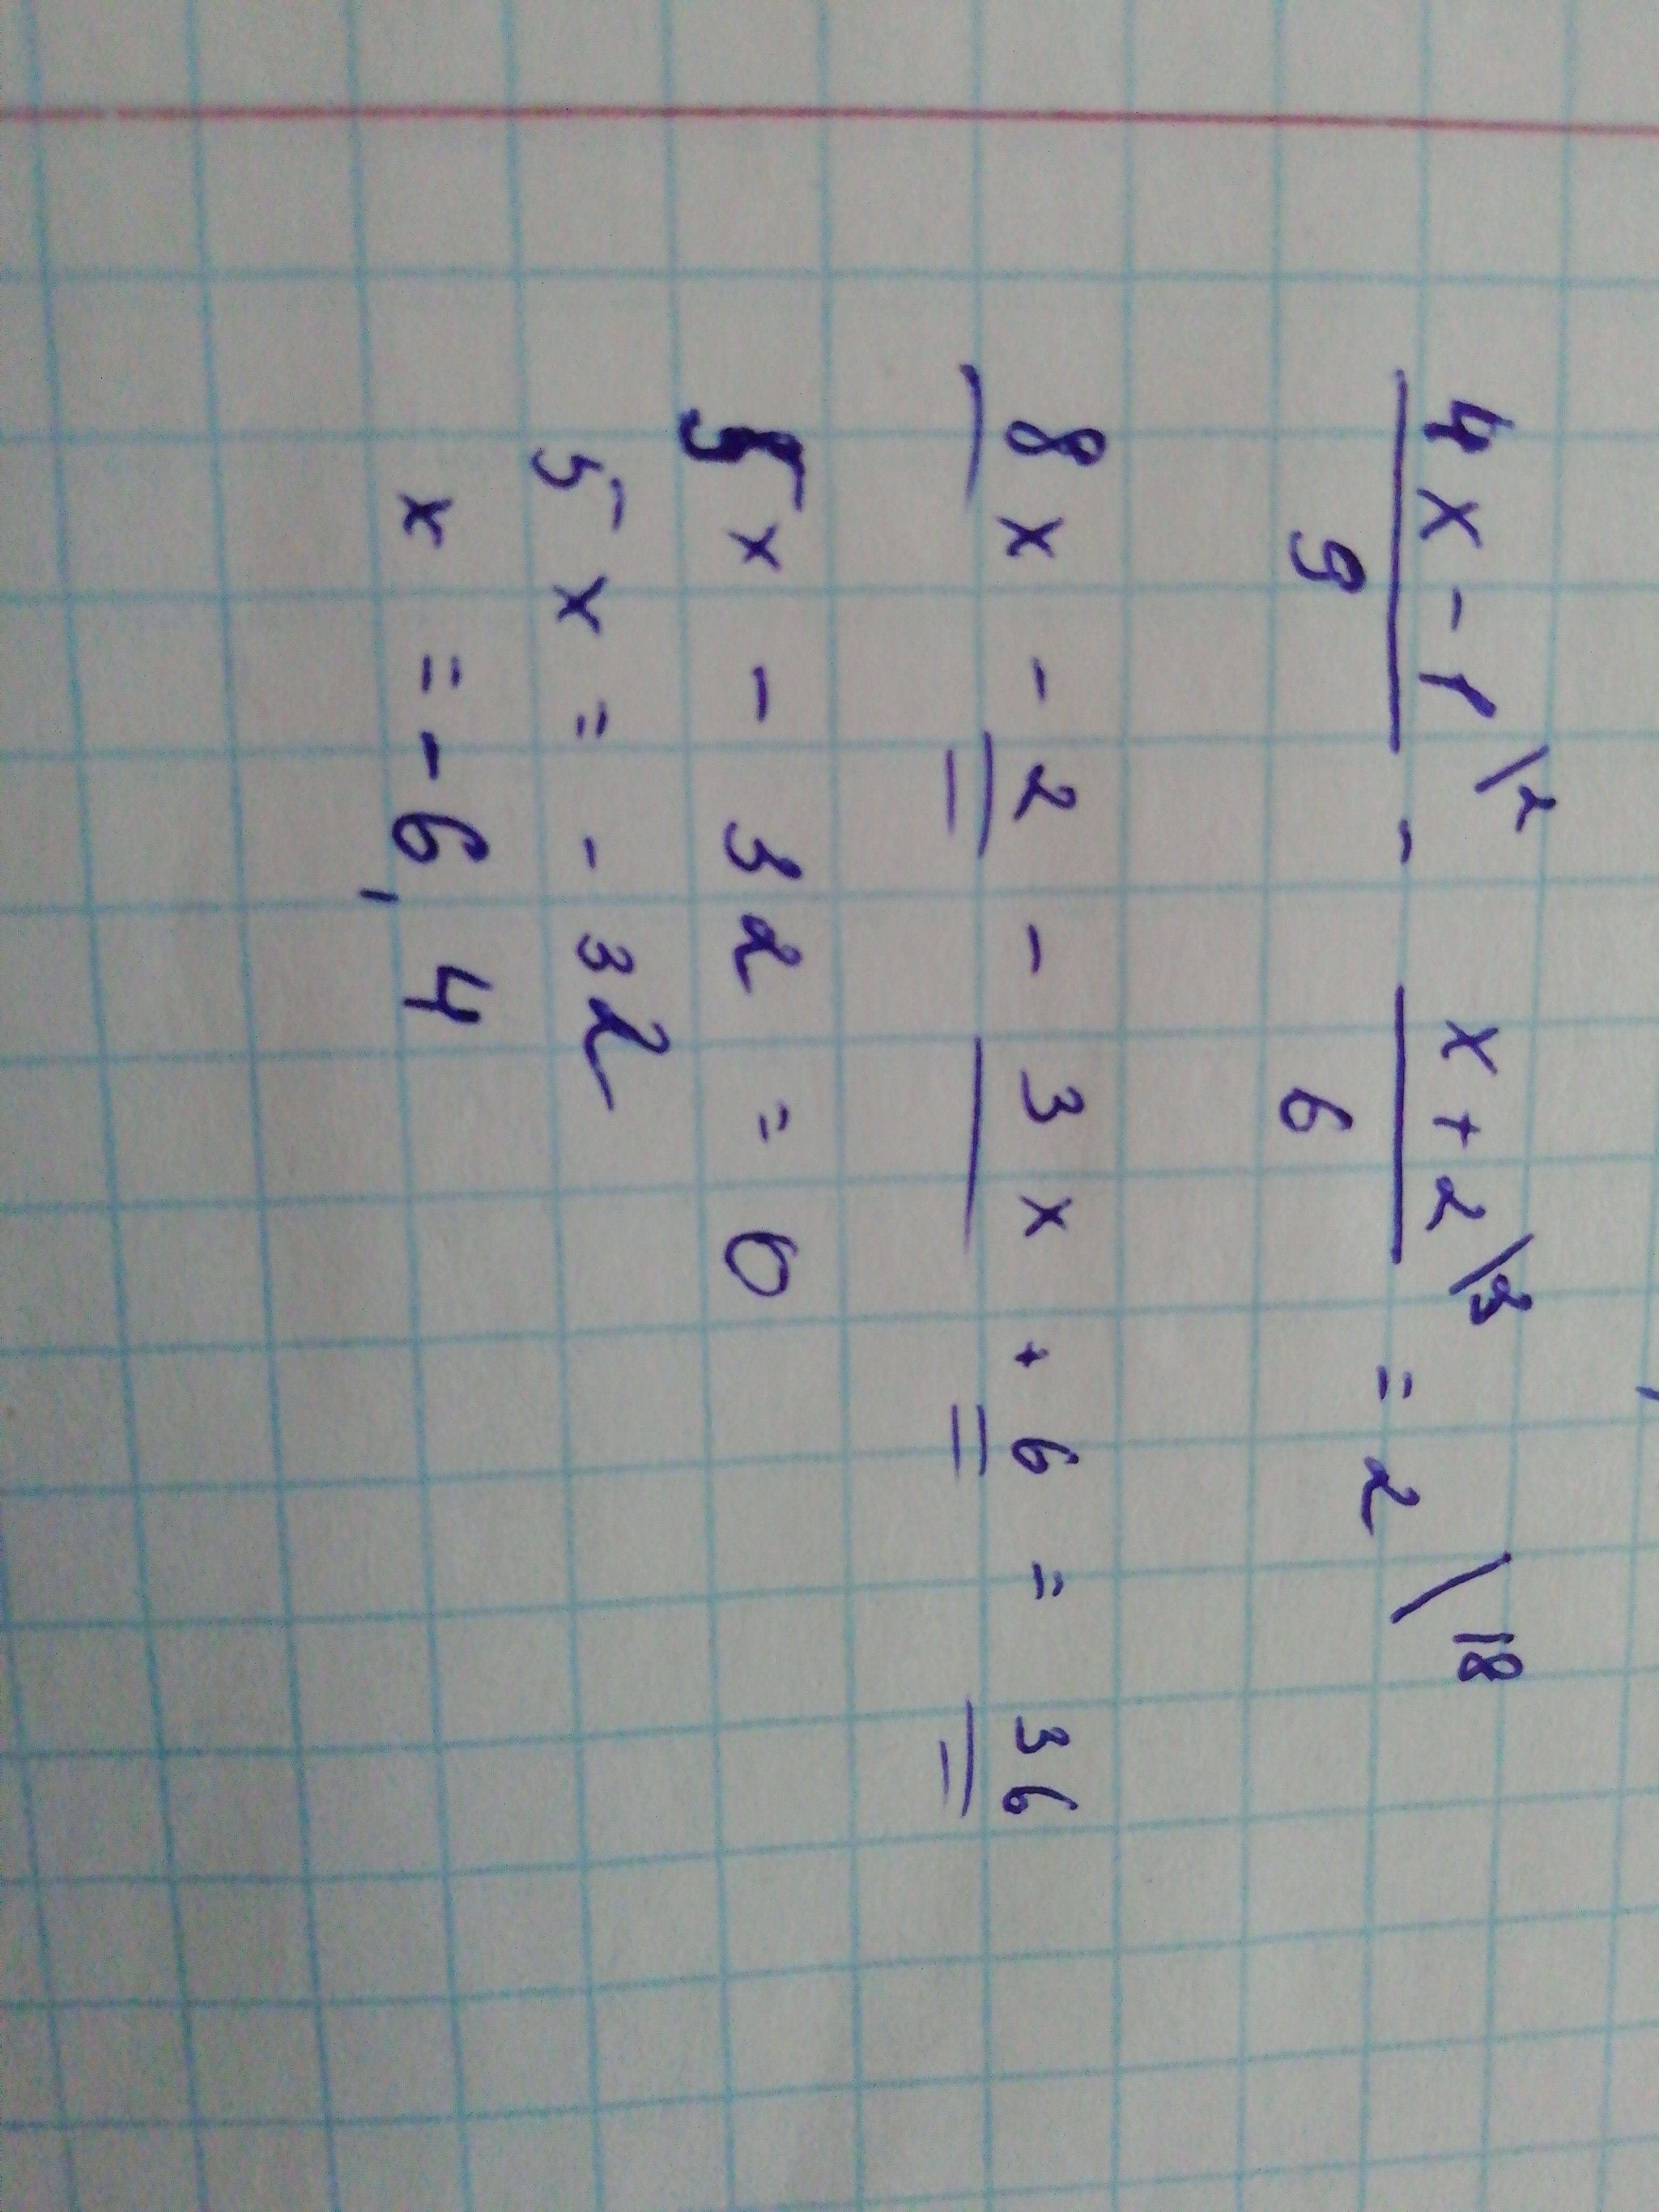 4x-1\2 - x+2\3 = 2\18
9 6
8x - 2 - 3x + 6 = 36
5x - 32 = 0
5x = - 32
x = - 6,4